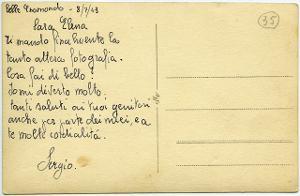 Colle Tramonda - 8/7/43
Cara Elena
Ti mando finalmente la
tanto attesa fotografia.
Cosa fai di bello?
Io mi diverto molto.
Tanti saluti ai tuoi genitori
anche per parte dei miei, e a
te molte cordialità.
Sergio.
35